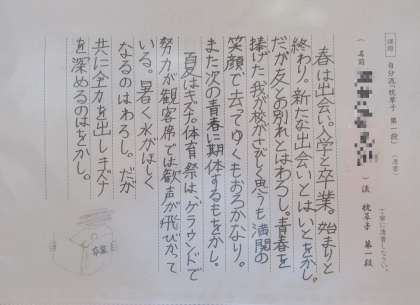 課題 自分流「枕草子 第一段」(清書)
丁寧に清書しなさい。
( 名前
) 流 枕草子 第一段
春は出会い。入学と卒業。始まりと
終わり。新たな出会いとはいとをかし。
だが友とお別れとはわろし。青春を
捧げた我が校がさびしく思うも満開の
笑顔で去てゆくもおろかなり。
また次の青春に期体するもをかし。
夏はキズナ。体育祭は、グラウンドで
努力が観客席では歓声が飛びかって
いる。暑く水がほしく
なるのはわろし。だが
共に全力を出しキズナ
を深めるのはをかし。
卒業